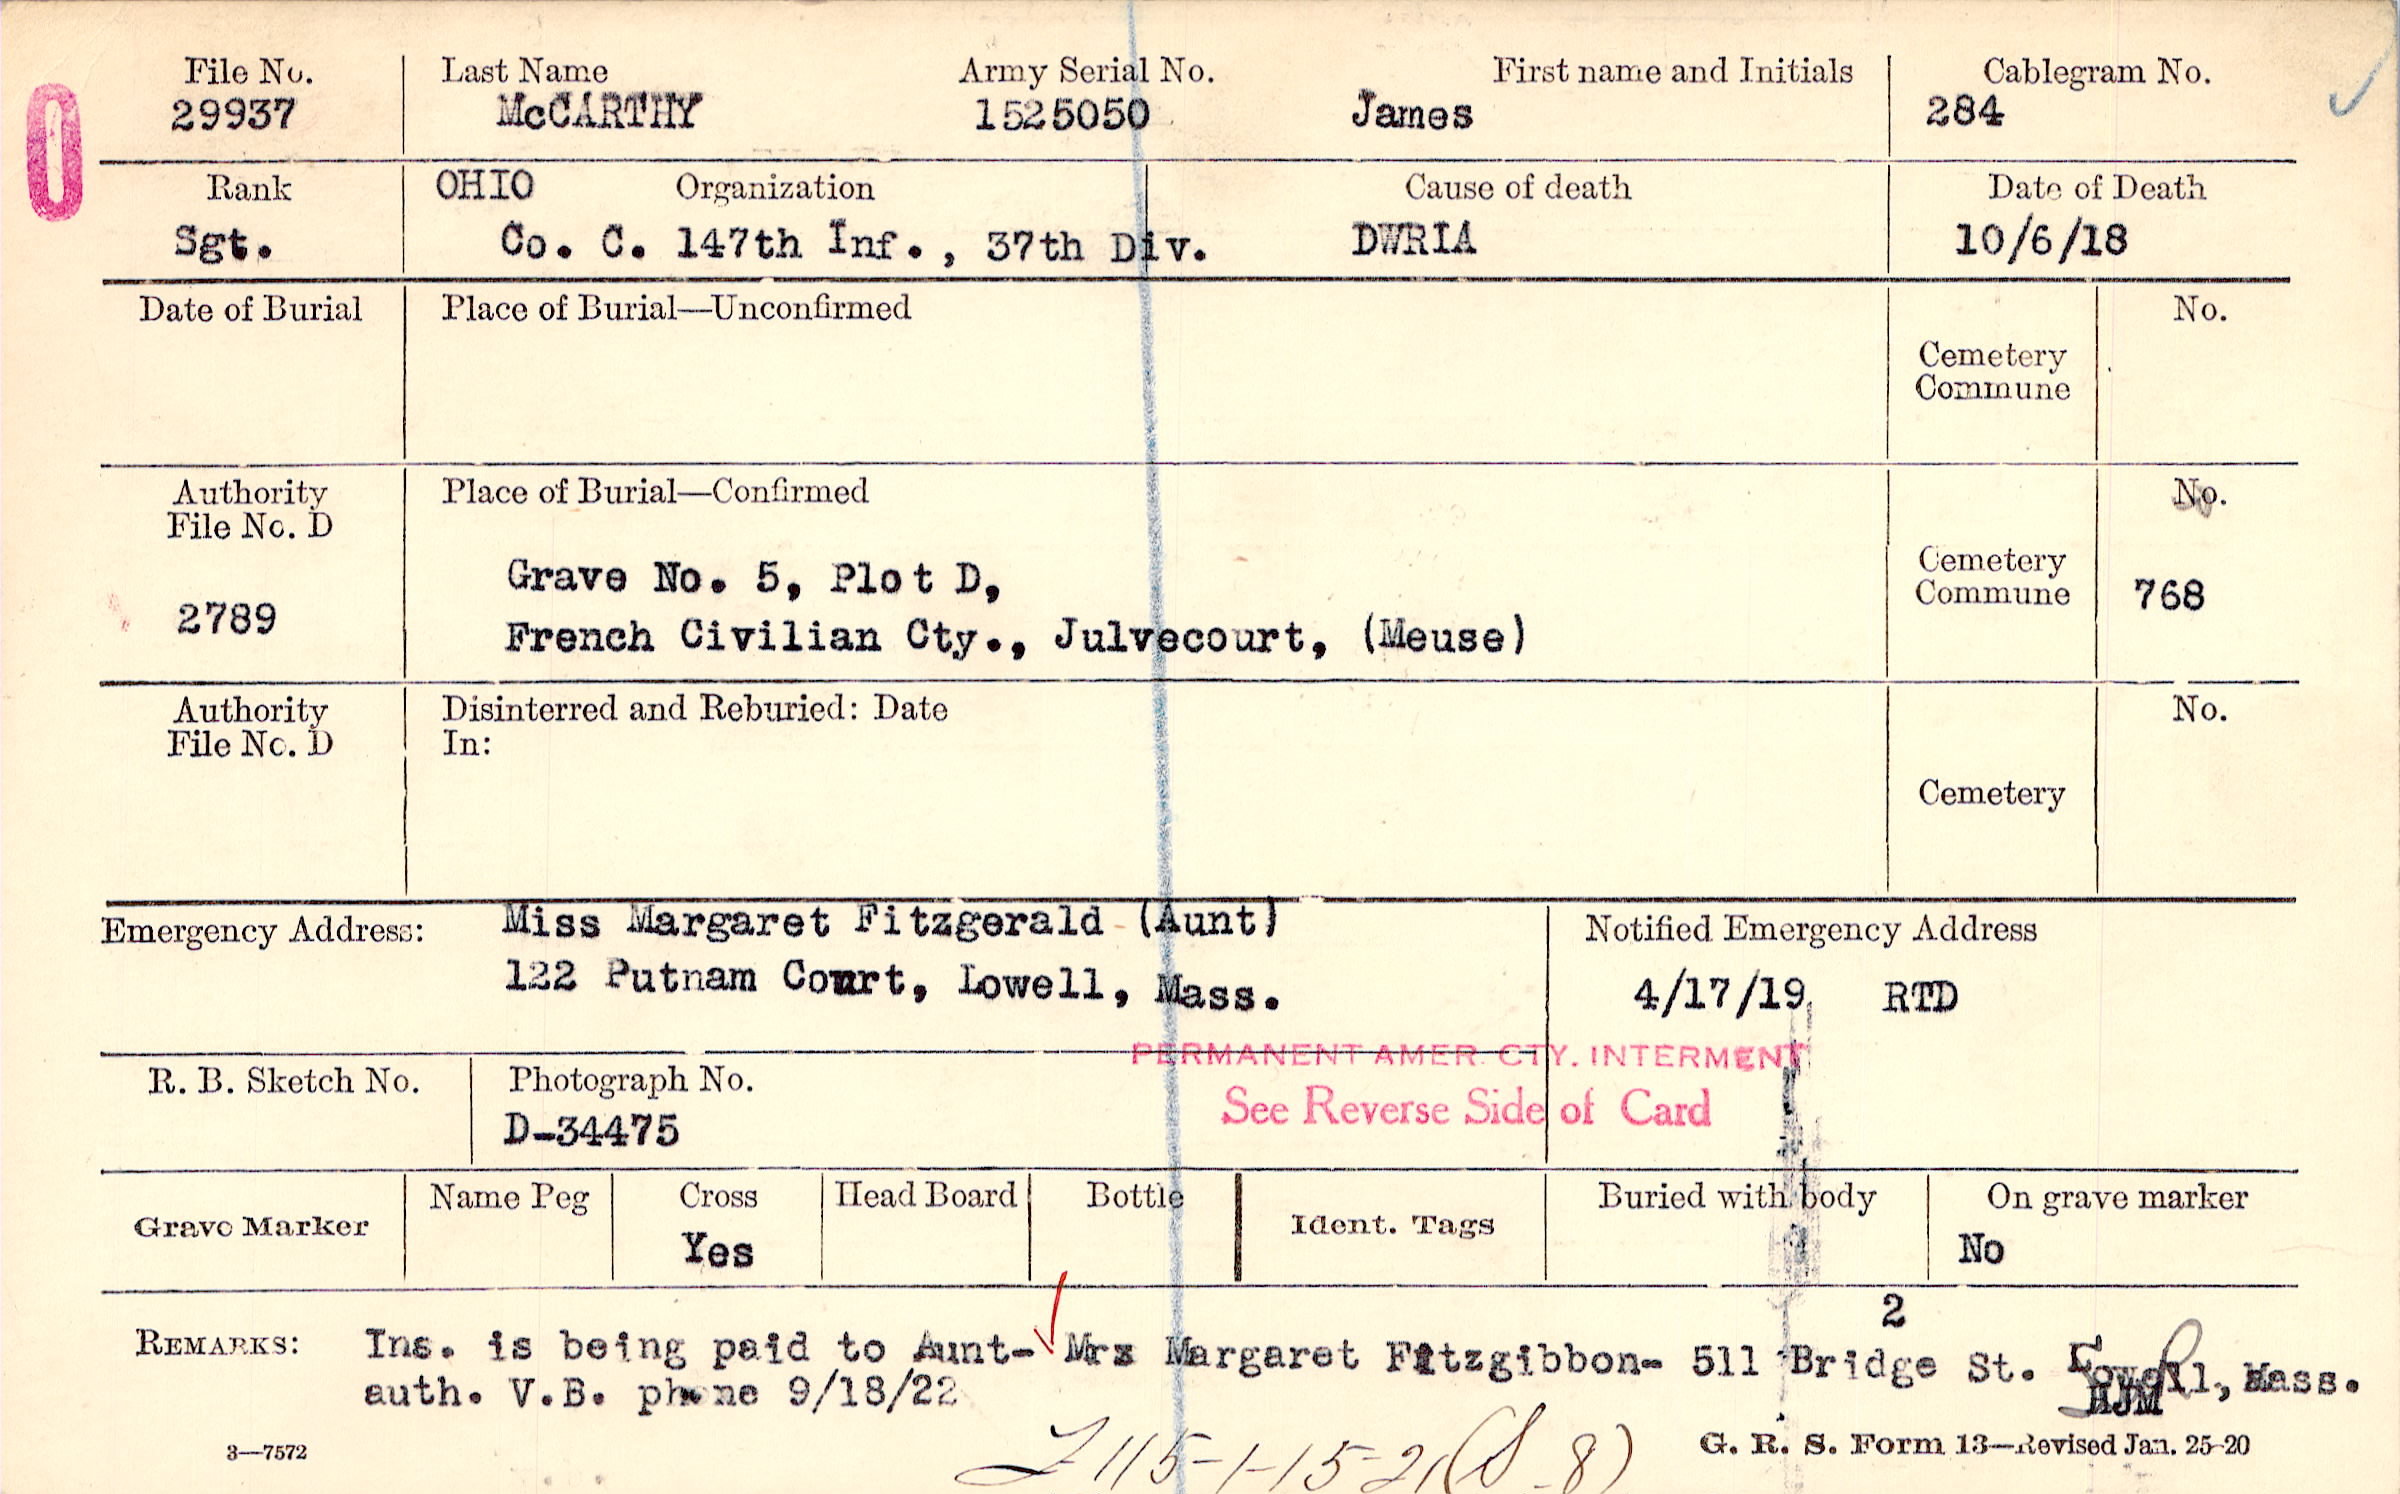 File No. Last Name Army Serial No. First name and Initials Cablegram No.
29937 McCARTHY 1525050 James 284
Rank OHIO Organization Cause of death Date of Death
Sgt. Co. C. 147th Inf., 37th Div. DWRIA 10/6/18
Date of Burial Place of Burial—Unconfirmed No.
Cemetery
Commune
Authority Place of Burial—Confirmed No.
File No. D
Grave No. 5, Plot D, Cemetery
2789 Commune 768
French Civilian Cty., Julvecourt, (Meuse)
Authority Disinterred and Reburied: Date No.
File No. D In:
Cemetery
Emergency Address: Miss Margaret Fitzgerald (Aunt) Notified Emergency Address
122 Putnam Court, Lowell, Mass. 4/17/19 RTD
PERMANENT AMER. CTY. INTERMENT
R. B. Sketch No. Photograph No. See Reverse Side of Card
D-34475
Grave Marker Name Peg Cross Head Board Bottle Ident. Tags Buried with body On grave marker
Yes No
2
REMARKS: Ins. is being paid to Aunt- Mrs Margaret Fitzgibbon- 511 Bridge St. Lowell, Mass.
auth. V.B. phone 9/18/22 HJM
3—7572 G. R. S. Form 13—Revised Jan. 25-20